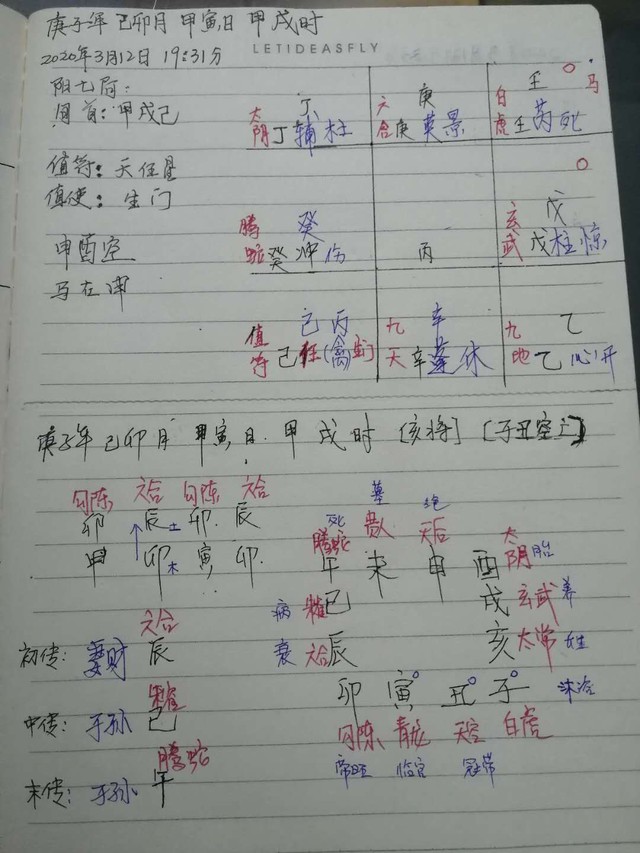 庚子年 己卯月 甲寅日 甲戌时
2020年3月12日 19:31分
LETIDEASFLY
阳七局:
旬首:甲戌己
值符:天任星
值使:生门
甲酉空
马在申
丁
太阴 丁辅 杜
庚
六合 庚 英 景
壬 ○ 马
白虎 壬 芮 死
癸
腾蛇 癸 冲 伤
丙
○
戊
玄武 戊 柱 惊
己 丙
值符 己 任(禽) 生
辛
九天 辛 蓬 休
乙
九地 乙 心 开
庚子年 己卯月 甲寅日 甲戌时 [亥将] [子丑空亡]
勾陈 六合 勾陈 六合
卯 辰土 卯 辰
甲 卯木 寅 卯
六合
初传:妻财 辰
朱雀
中传:子孙 巳
腾蛇
末传:子孙 午
死 墓 绝
腾蛇 贵人 天后 太阴 胎
午 未 申 酉
病 朱雀 巳 戌 玄武 养
衰 六合 辰 亥 太常 生
卯 寅 丑 子 沐浴
勾陈 青龙 天空 白虎
帝旺 临官 冠带